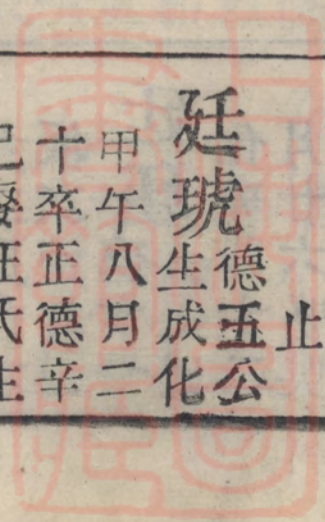 止
廷琥德五公
生成化
甲午八月二
十卒正德辛
氏生